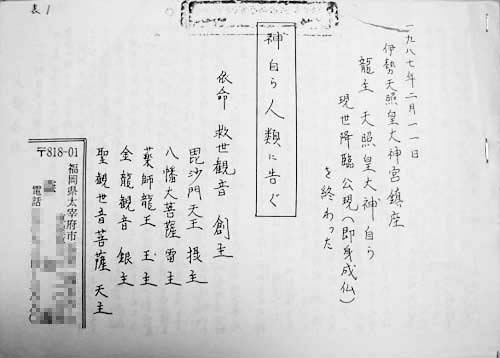 表1
一九八七年二月一一日
伊勢天照皇大神宮鎮座
龍主 天照皇大神自ら
現世降臨公現(即身成仏)
を終わった
神自ら人類に告ぐ
依命 救世観音 創主
毘沙門天王 提主
八幡大菩薩 雷主
薬師龍王 玉主
金龍観音 銀主
聖観世音菩薩 天主
〒818-01
福岡県太宰府市
電話